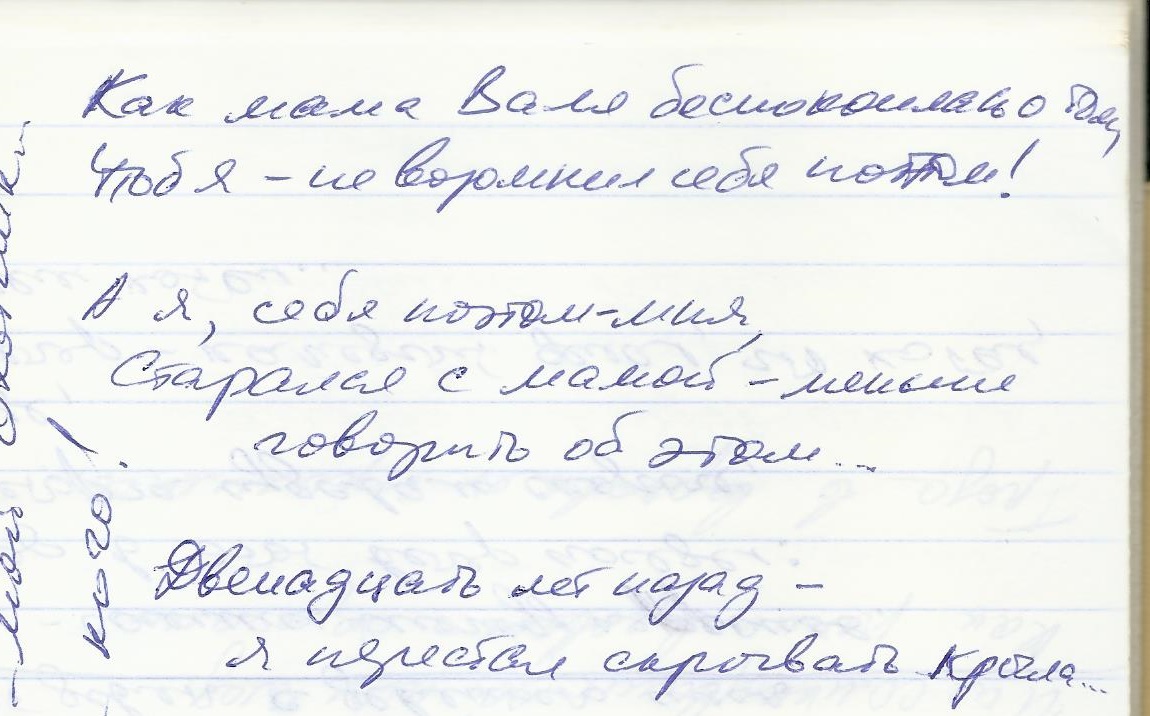 Как мама Валя беспокоилась о том,
Чтоб я – не возомнил себя поэтом!
А я, себя поэтом-мня,
Старался с мамой – меньше
говорить об этом...
Двенадцать лет назад –
я перестал скрывать крыла...
кого!